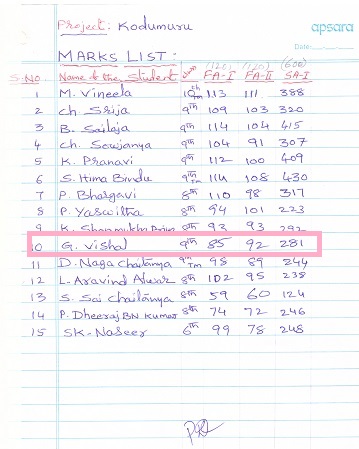 apsara
Project: Kodumuru
Date:
MARKS LIST:
(120) (120) (600)
S.NO. Name of the Student FA-I FA-II SA-I
1 M. Vineela 10th TM 113 111 388
2 ch Srija 9th 109 103 320
3 B. Sailaja 9th 114 104 415
4 ch. Sowjanya 9th 104 91 307
5 K. Pranavi 9th 112 100 409
6 S. Hima Bindu 9th 114 108 430
7 P. Bhargavi 8th 110 98 317
8 P. Yaswitha 8th 94 101 223
9 K. 8th 93 93 292
10 G. Vishal 9th 85 92 281
11 D. Naga Chaitanya 9th TM 98 89 244
12 L. Aravind 8th 102 95 238
13 S. Sai Chaitanya 8th 59 60 124
14 P. Dheeraj BN Kumar 8th 74 72 246
15 SK. Naseer 6th 99 78 248